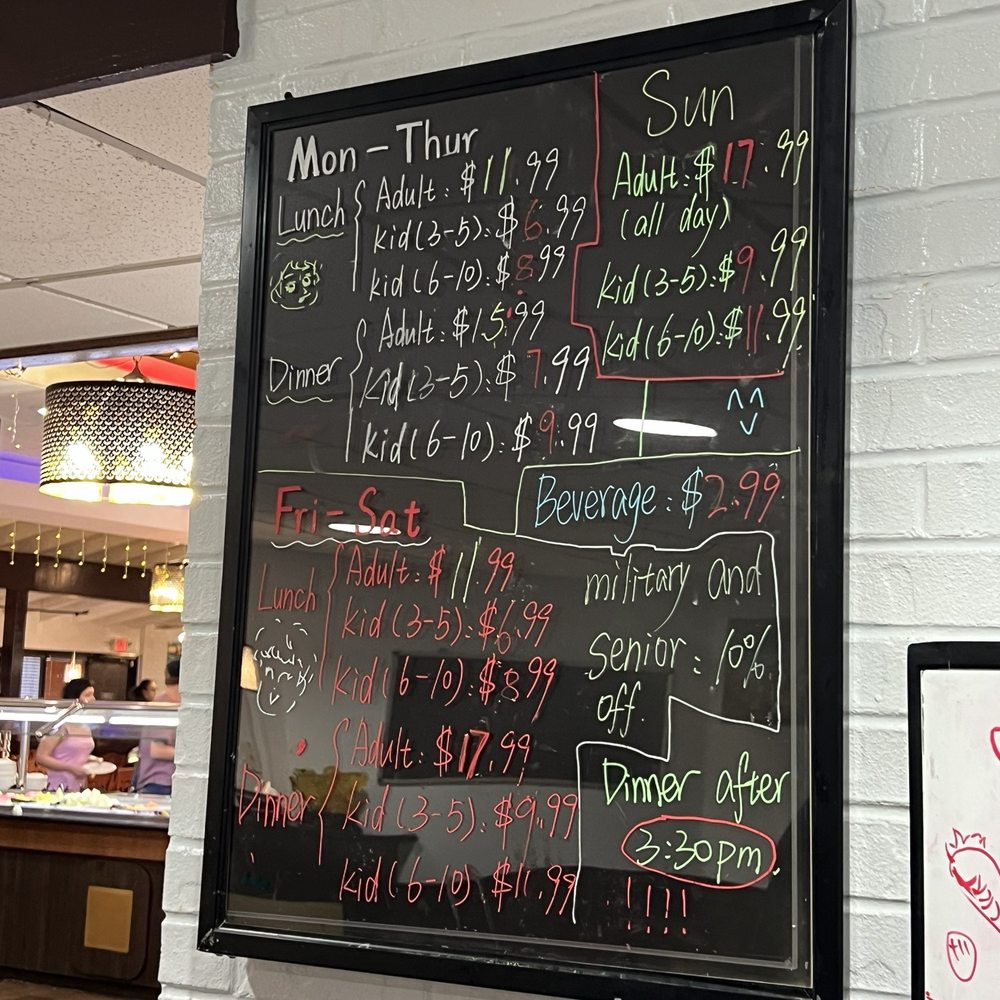 Mon - Thur
Lunch
Adult: $11.99
kid(3-5): $6.99
kid(6-10): $8.99
Dinner
Adult: $15.99
kid(3-5): $7.99
kid(6-10): $9.99
Sun
Adult: $17.99
(all day)
kid(3-5): $9.99
kid(6-10): $11.99
Beverage: $2.99
Fri - Sat
Lunch
Adult: $11.99
kid(3-5): $6.99
kid(6-10): $8.99
Dinner
Adult: $17.99
kid(3-5): $9.99
kid(6-10): $11.99
military and
senior: 10%
off.
Dinner after
3:30pm.
!!!!